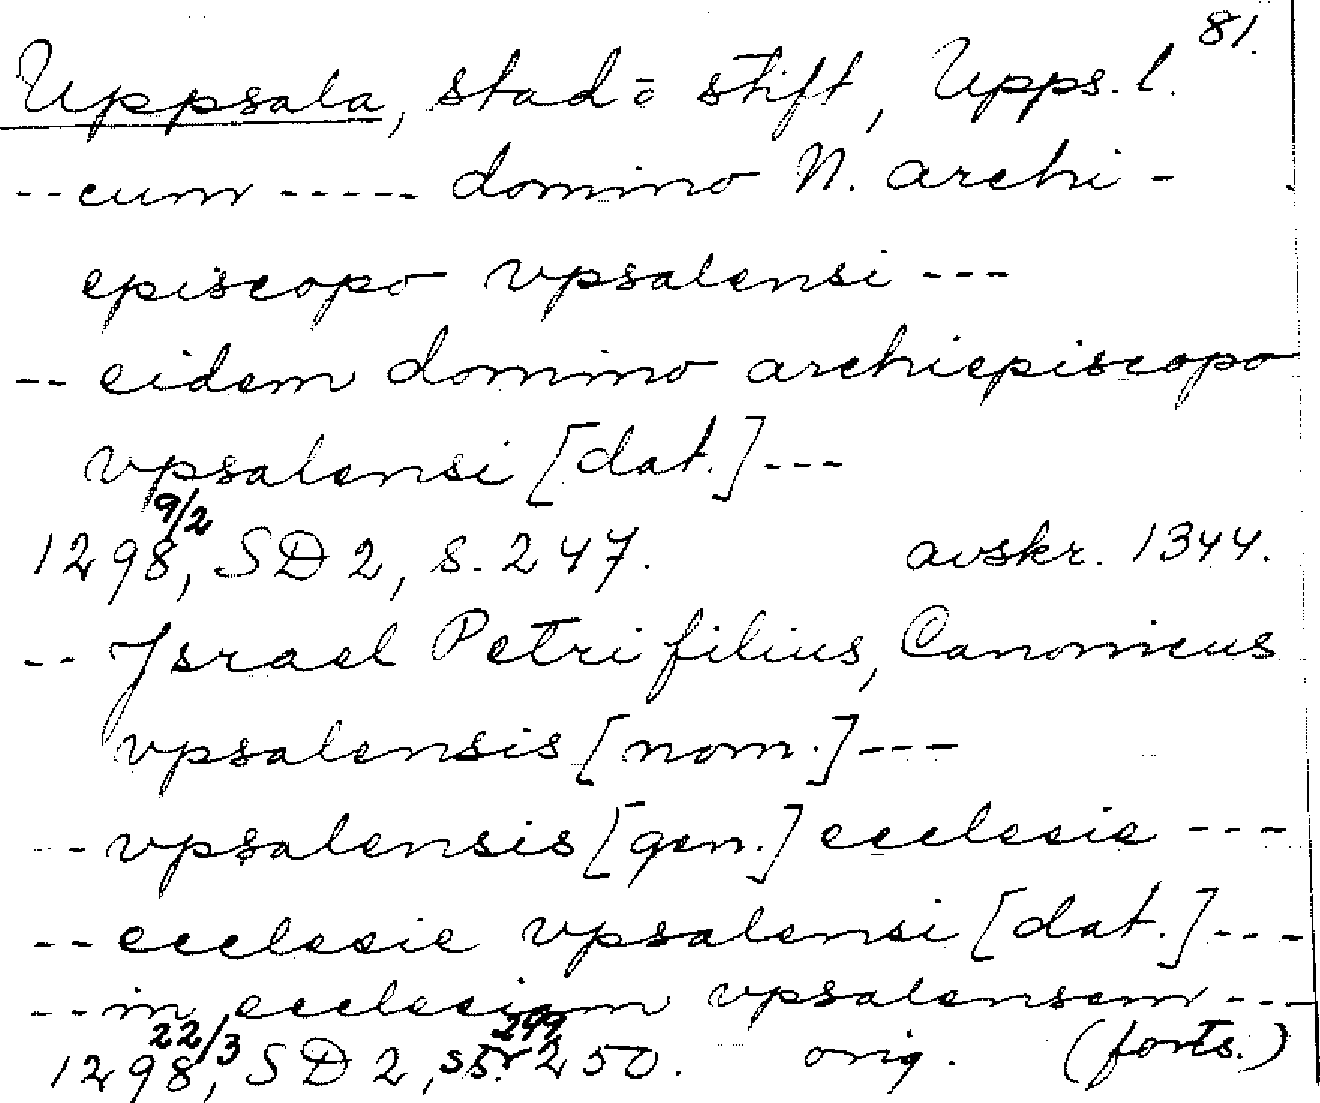 81.
Uppsala, stad o stift, Upps. l.
-- cum ----- domino N. archi-
episcopo vpsalensi ---
-- eidem domino archiepiscopo
vpsalensi [dat.] ---
9/2
1298, SD 2, s. 247. avskr. 1344.
-- Jsrael Petri filius, Canonicus
vpsalensis [nom.] ---
-- vpsalensis [gen.] ecclesie ---
-- ecclesie vpsalensi [dat.] ---
-- in ecclesiam vpsalensem ---
22/3 249
1298, SD 2, s. 250. orig. (forts.)